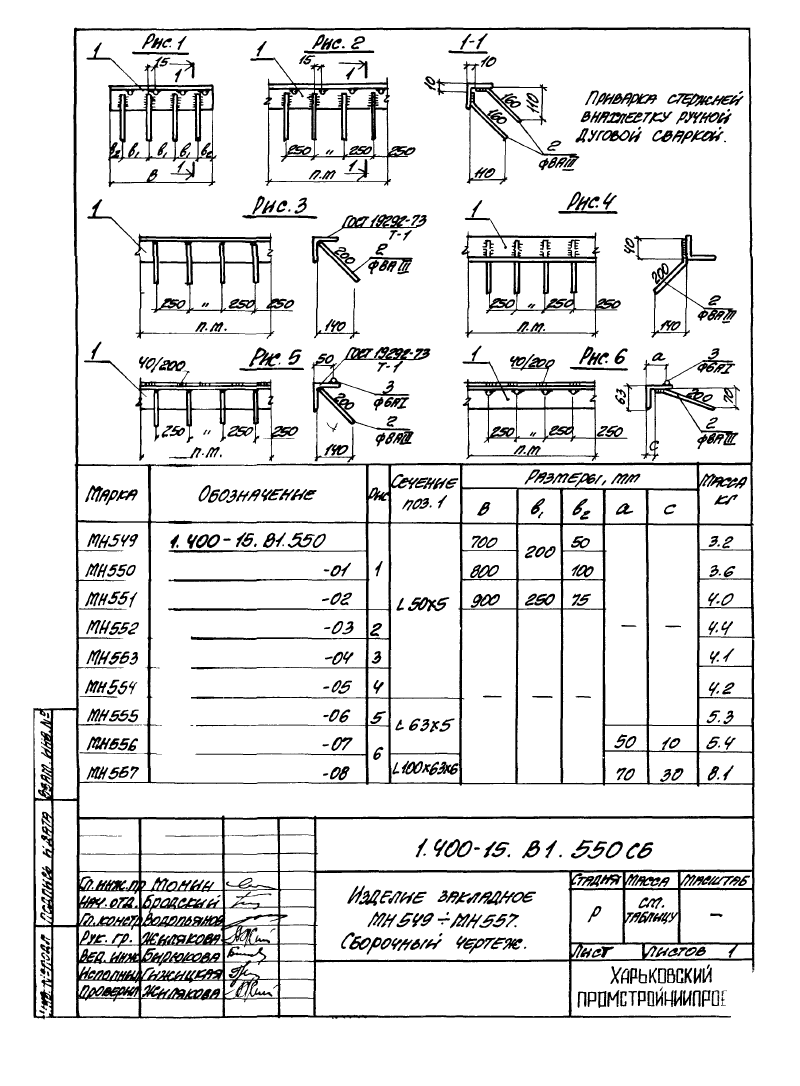 Рис.1
Рис. 2
1-1
1
15
1
1
15
1
10
10
160
160
110
110
2
ф8АIII
в2 в1 в1 в1 в2
1
В
250 " 250 250
1
п.м
Приварка стержней
внахлестку ручной
дуговой сваркой.
Рис. 3
1
ГОСТ 19292-73
Т-1
200
2
ф8АIII
250 " 250 250
п.м.
140
Рис. 4
1
40
200
2
ф8АIII
250 " 250 250
п.м.
140
Рис. 5
1
40/200
50
ГОСТ 19292-73
Т-1
3
ф6АI
200
2
ф8АIII
250 " 250 250
п.м.
140
Рис. 6
1
40/200
а
3
ф6АI
63
200
70
2
ф8АIII
с
250 " 250 250
п.м.
Марка Обозначение Рис Сечение поз.1 Размеры, мм Масса кг
В в1 в2 а с
МН549 1.400-15.В1.550 1 L50х5 700 200 50 — — 3.2
МН550 -01 800 100 3.6
МН551 -02 900 250 75 4.0
МН552 -03 2 — — — 4.4
МН553 -04 3 4.1
МН554 -05 4 4.2
МН555 -06 5 L63х5 5.3
МН556 -07 6 50 10 5.4
МН557 -08 L100х63х6 70 30 8.1
Взам. инв.№
Подпись и дата
Инв.№подл
1.400-15.В1.550СБ
Гл.инж.пр Момин
Нач.отд. Бродский
Гл.констр Водопьянов
Рук. гр. Жилякова
Вед.инж Бирюкова
Исполнил Гижицкая
Проверил Жилякова
Изделие закладное
МН549÷МН557.
Сборочный чертеж.
Стадия Масса Масштаб
Р см. таблицу —
Лист Листов 1
Харьковский
Промстройниипрое